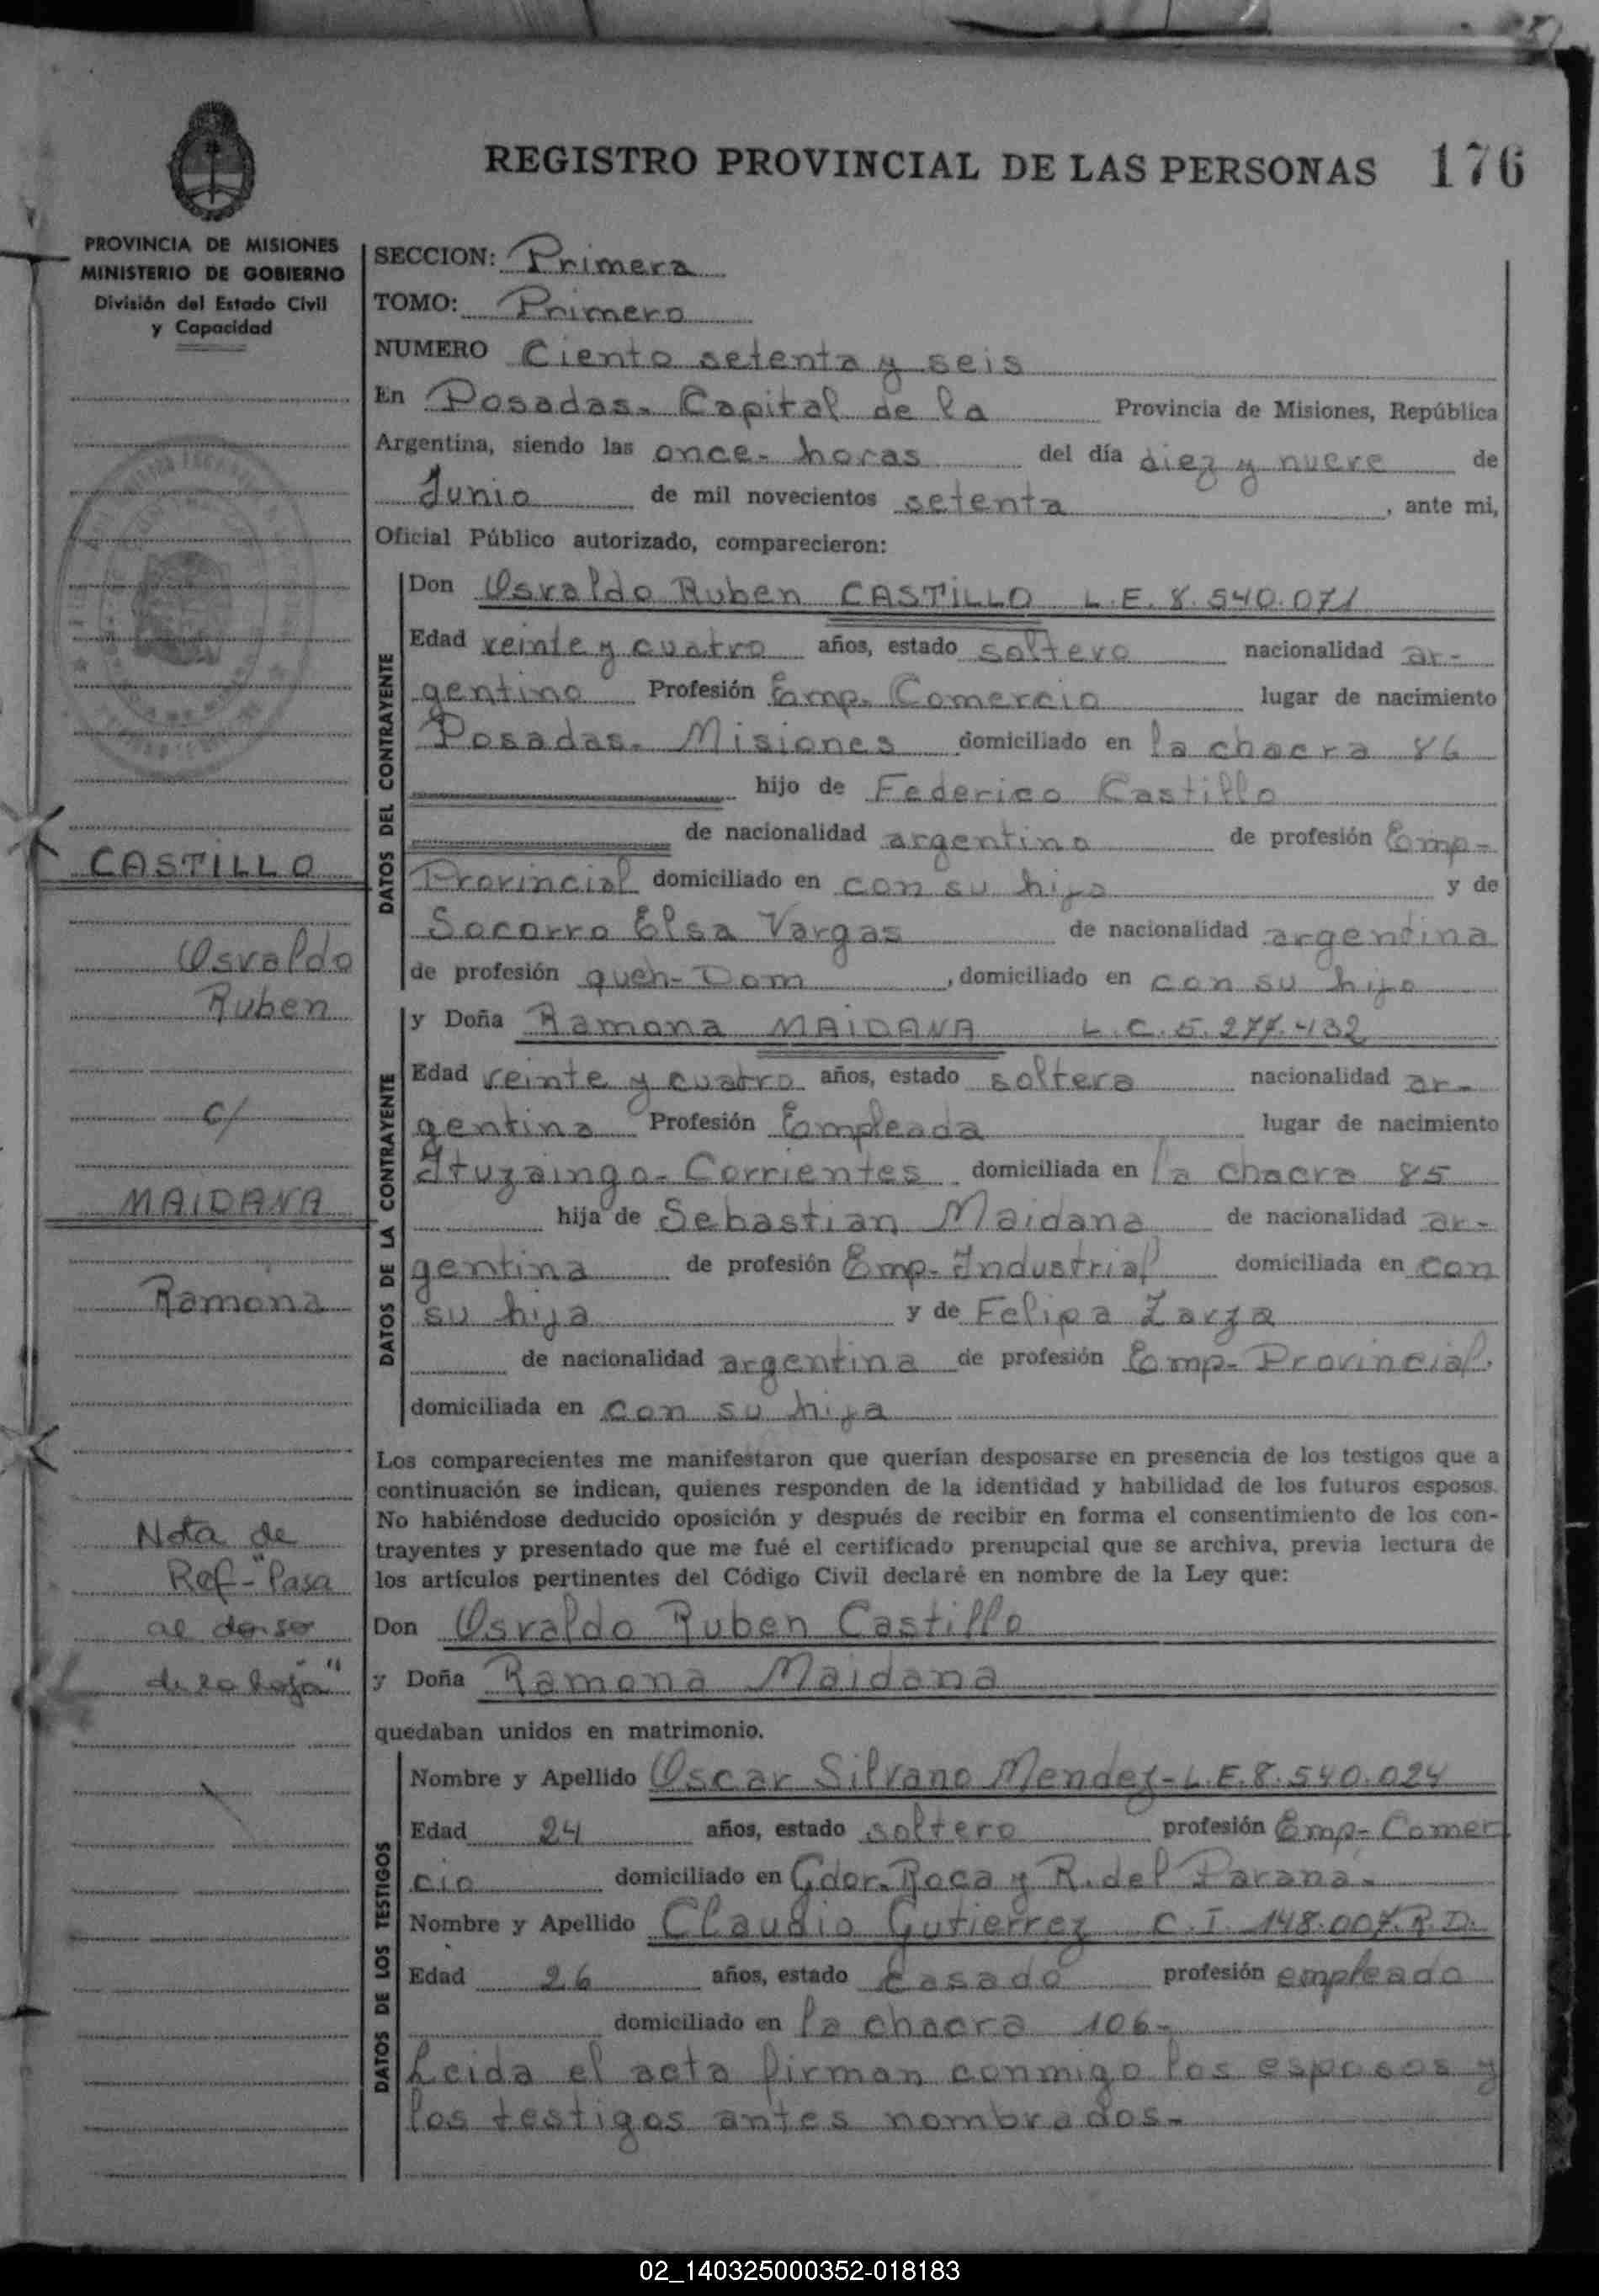 REGISTRO PROVINCIAL DE LAS PERSONAS 176
PROVINCIA DE MISIONES
MINISTERIO DE GOBIERNO
División del Estado Civil
y Capacidad
SECCION: Primera
TOMO: Primero
NUMERO Ciento setenta y seis
En Posadas- Capital de la Provincia de Misiones, República
Argentina, siendo las once- horas del día diez y nueve de
Junio de mil novecientos setenta, ante mi,
Oficial Público autorizado, comparecieron:
DATOS DEL CONTRAYENTE
Don Osvaldo Ruben CASTILLO L.E. 8.540.071
Edad veinte y cuatro años, estado soltero nacionalidad ar-
gentino Profesión Emp. Comercio lugar de nacimiento
Posadas- Misiones domiciliado en la chacra 86
hijo de Federico Castillo
de nacionalidad argentino de profesión Emp-
Provincial domiciliado en con su hijo y de
Socorro Elsa Vargas de nacionalidad argentina
de profesión queh-Dom, domiciliado en con su hijo
DATOS DE LA CONTRAYENTE
y Doña Ramona MAIDANA L.C. 5.277.432
Edad veinte y cuatro años, estado soltera nacionalidad ar-
gentina Profesión Empleada lugar de nacimiento
Ituzaingo- Corrientes domiciliada en la chacra 85
hija de Sebastian Maidana de nacionalidad ar-
gentina de profesión Emp- Industrial domiciliada en con
su hija y de Felipa Zarza
de nacionalidad argentina de profesión Emp- Provincial.
domiciliada en con su hija
Los comparecientes me manifestaron que querían desposarse en presencia de los testigos que a
continuación se indican, quienes responden de la identidad y habilidad de los futuros esposos.
No habiéndose deducido oposición y después de recibir en forma el consentimiento de los con-
trayentes y presentado que me fué el certificado prenupcial que se archiva, previa lectura de
los artículos pertinentes del Código Civil declaré en nombre de la Ley que:
Don Osvaldo Ruben Castillo
y Doña Ramona Maidana
quedaban unidos en matrimonio.
DATOS DE LOS TESTIGOS
Nombre y Apellido Oscar Silvano Mendez- L.E. 8.540.024
Edad 24 años, estado soltero profesión Emp- Comer
cio domiciliado en Gdor. Roca y R. del Parana-
Nombre y Apellido Claudio Gutierrez C.I. 148.007.R.D.
Edad 26 años, estado Casado profesión empleado
domiciliado en la chacra 106-
Leida el acta firman conmigo los esposos y
los testigos antes nombrados-
CASTILLO
Osvaldo
Ruben
c/
MAIDANA
Ramona
Nota de
Ref- "Pasa
al dorso
de la hoja"
02_140325000352-018183